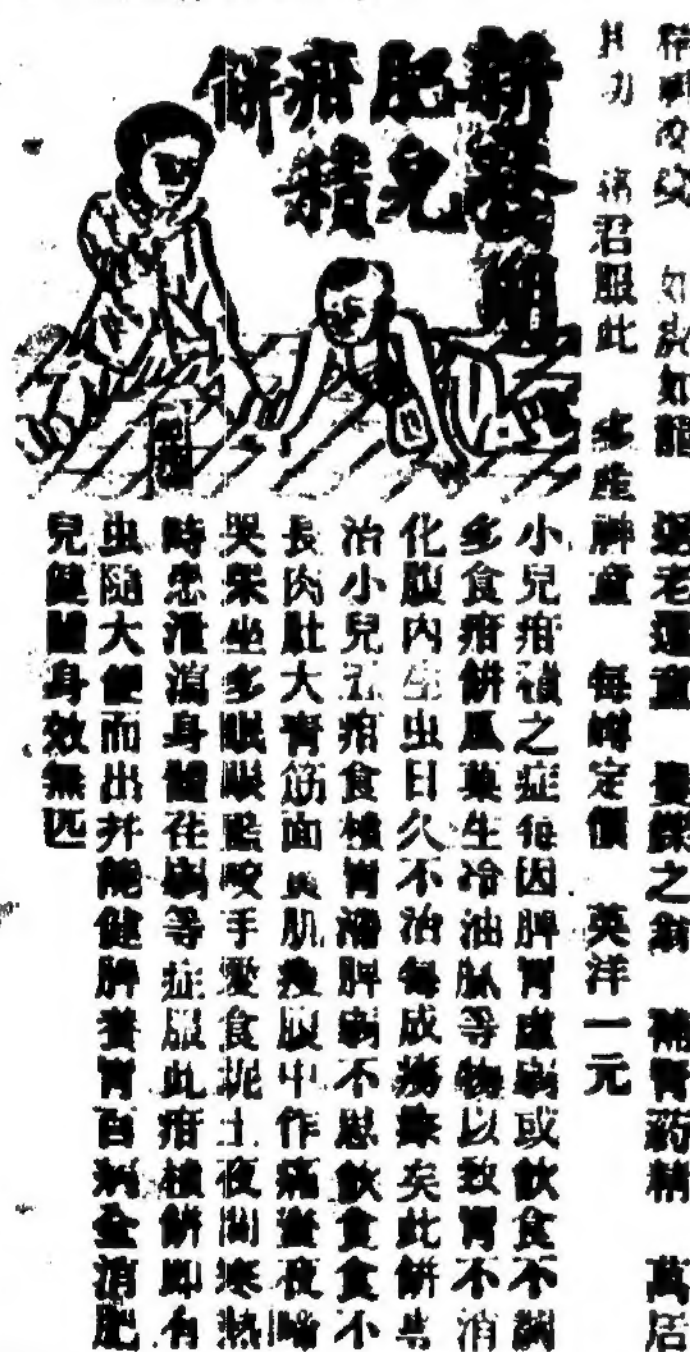 精神
如虎如龍
返老還童
之翁
補腎葯精
萬居
其功
諸君服此
多産神童
每罇定價
英洋一元
新發明
肥兒
疳積
餅
小兒疳積之症每因脾胃虛弱或飲食不調
多食疳餅瓜菓生冷油膩等物以致胃不消
化腹內生虫日久不治每成癆瘵矣此餅專
治小兒五疳食積胃滯脾弱不思飲食食不
長肉肚大青筋面黃肌瘦腹中作痛晝夜啼
哭呆坐多眠眼藍咬手愛食坭土夜間寒熱
時患泄瀉身體花癩等症服此疳積餅即有
虫隨大便而出并能健脾養胃百病全消肥
兒健體身效無匹